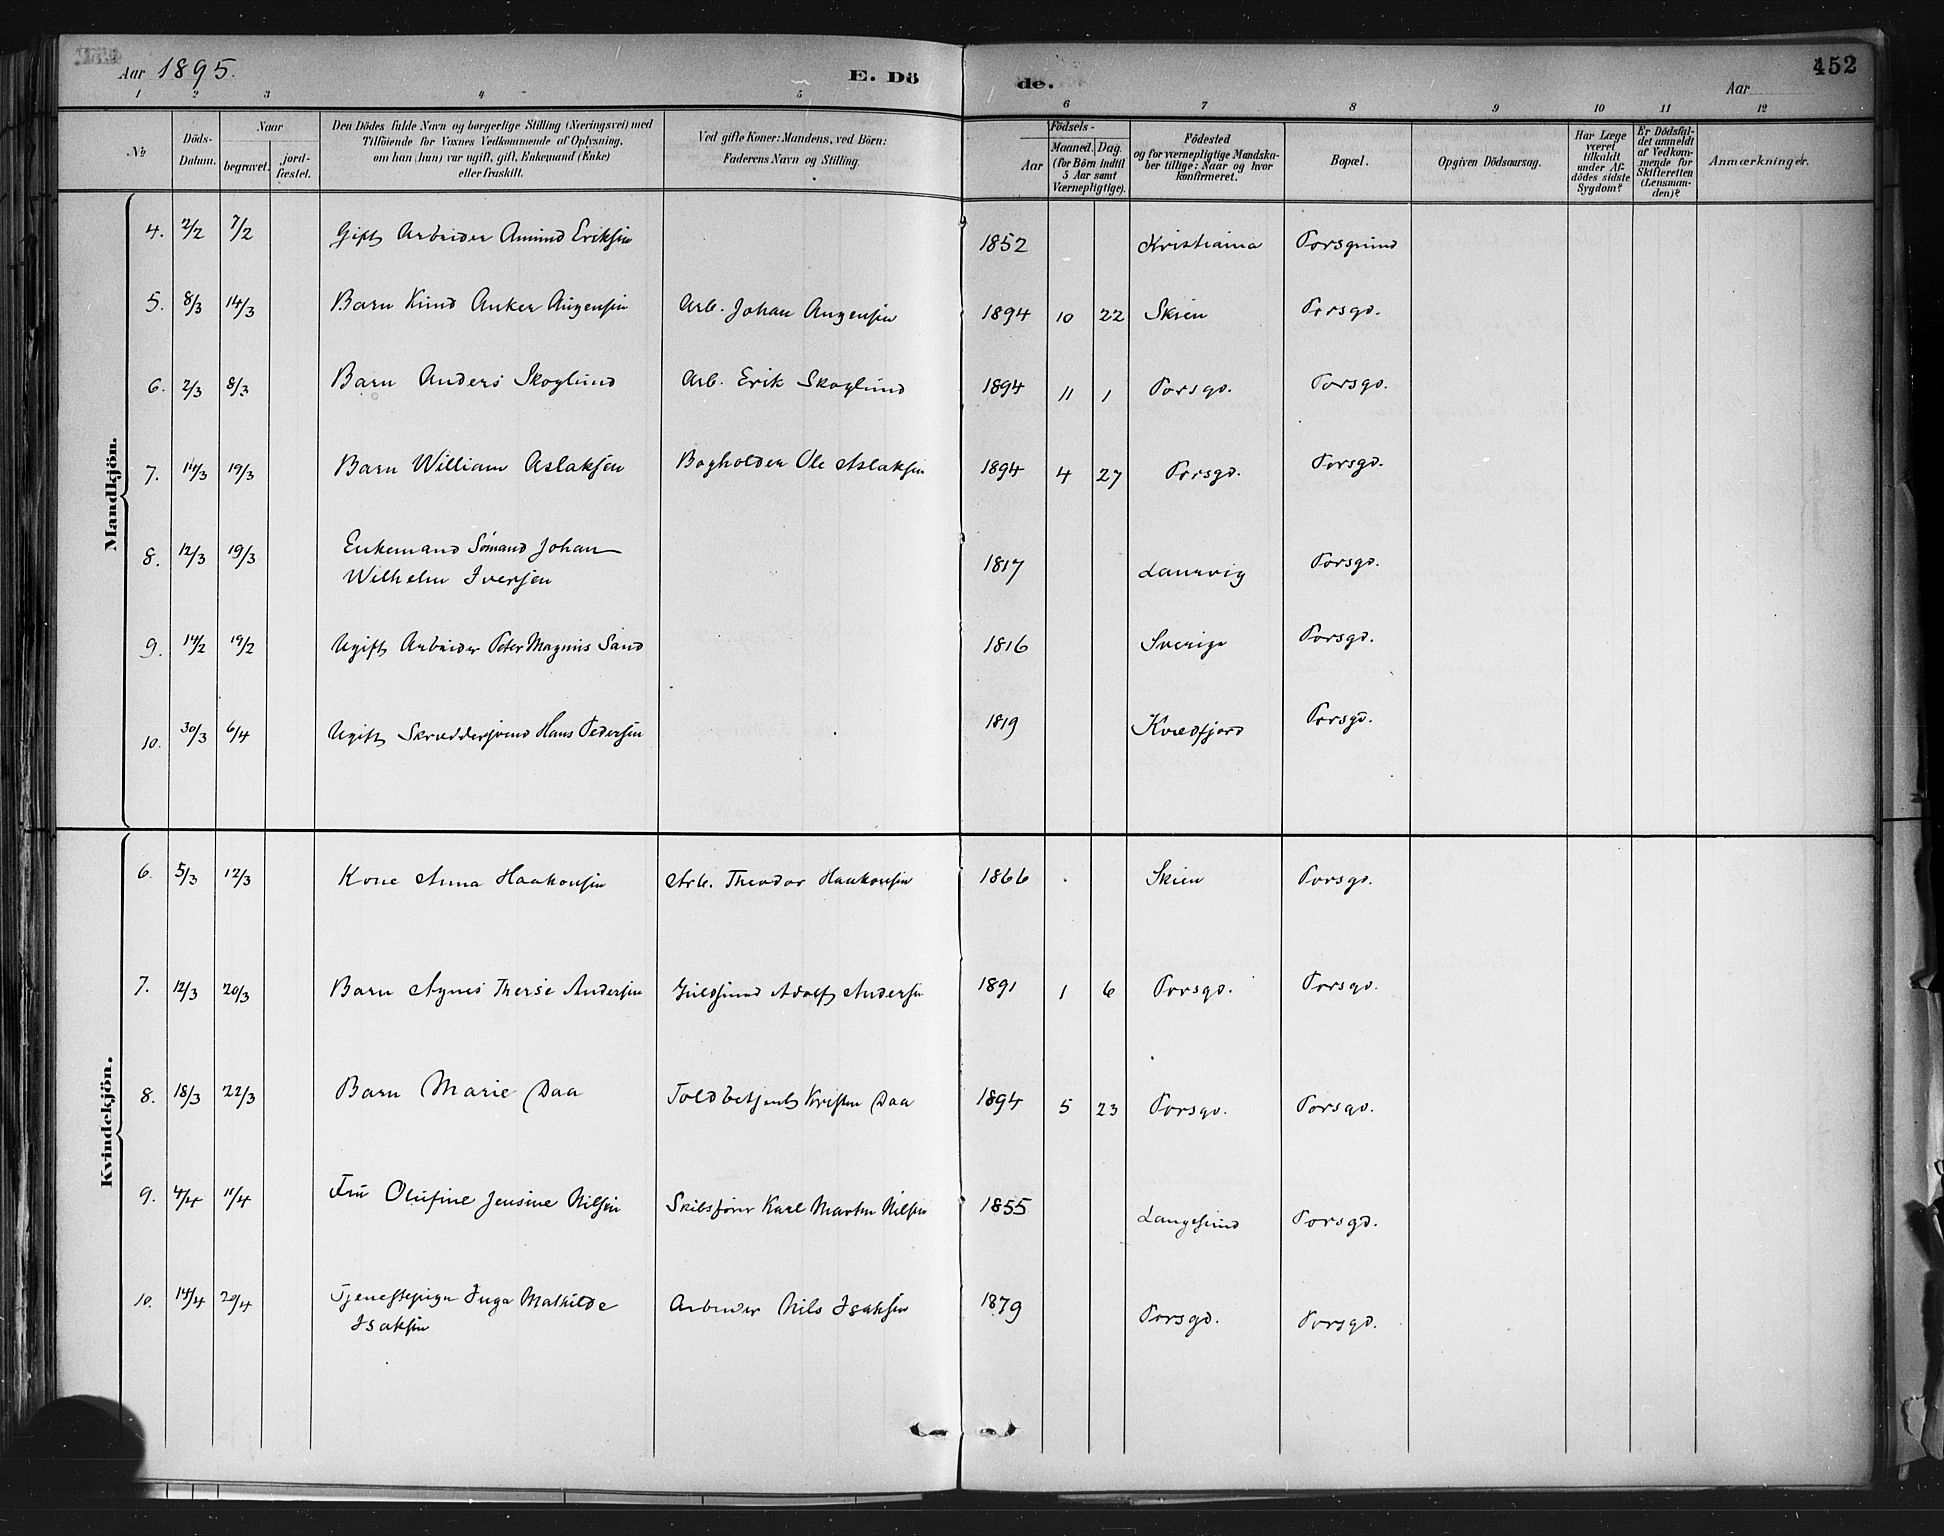 Aar 1895. E. Dö de. Aar 452
1 2 3 4 5 6 7 8 9 10 11 12
№ Döds-Datum. Naar begravet. jord-fæstet. Den Dödes fulde Navn og borgerlige Stilling (Næringsvei) med Tilföiende for Voxnes Vedkommende af Oplysning, om han (hun) var ugift, gift, Enkemand (Enke) eller fraskilt. Ved gifte Koner: Mandens, ved Börn: Faderens Navn og Stilling. Födsels- Aar Maaned. Dag. (for Börn indtil 5 Aar samt Værnepligtige). Födested og for værnepligtige Mandskaber tillige: Naar og hvor konfirmeret. Bopæl. Opgiven Dödsaarsag. Har Læge været tilkaldt under Afdödes sidste Sygdom? Er Dödsfaldet anmeldt af Vedkommende for Skifteretten (Lensmanden)? Anmærkninger.
Mandkjön.
4. 2/2 7/2 Gift Arbeider Amund Eriksen 1852 Kristiania Porsgrund
5. 8/3 14/3 Barn Knud Anker Augensen Arb. Johan Augensen 1894 10 22 Skien Porsgd.
6. 2/3 8/3 Barn Anders Skoglund Arb. Erik Skoglund 1894 11 1 Porsgd. Porsgd.
7. 14/3 19/3 Barn William Aslaksen Bogholder Ole Aslaksen 1894 4 27 Porsgd. Porsgd.
8. 12/3 19/3 Enkemand Sömand Johan
Wilhelm Iversen 1817 Laurvig Porsgd.
9. 14/2 19/2 Ugift Arbeider Peter Magnus Sand 1816 Sverige Porsgd.
10. 30/3 6/4 Ugift Skræddersvend Hans Pedersen 1819 Kvædfjord Porsgd.
Kvindekjön.
6. 5/3 12/3 Kone Anna Haakonsen Arb. Theodor Haakonsen 1866 Skien Porsgd.
7. 12/3 20/3 Barn Agnes Therse Andersen Guldsmed Adolf Andersen 1891 1 6 Porsgd. Porsgd.
8. 18/3 22/3 Barn Marie Daa Toldbetjent Kristen Daa 1894 5 23 Porsgd. Porsgd.
9. 4/4 11/4 Fru Olufine Jensine Nilsen Skibsförer Karl Martin Nilsen 1855 Langesund Porsgd.
10. 14/4 20/4 Tjenestepige Inga Mathilde
Isaksen Arbeider Nils Isaksen 1879 Porsgd. Porsgd.